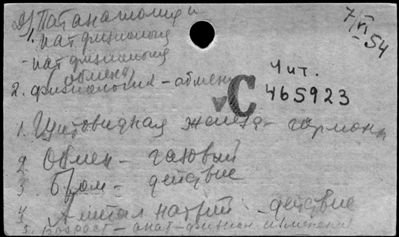 Д) Патанатомия
1. пат физиология
- пат физиология обмена
2. физиология - обмен
7/VI-54
Чит.
С 465923
1. Щитовидная железа - гормоны
2 Обмен - газовый
3 Бром - действие
4 Амитал натрий - действие
5. Возраст - анат-физиол. изменения